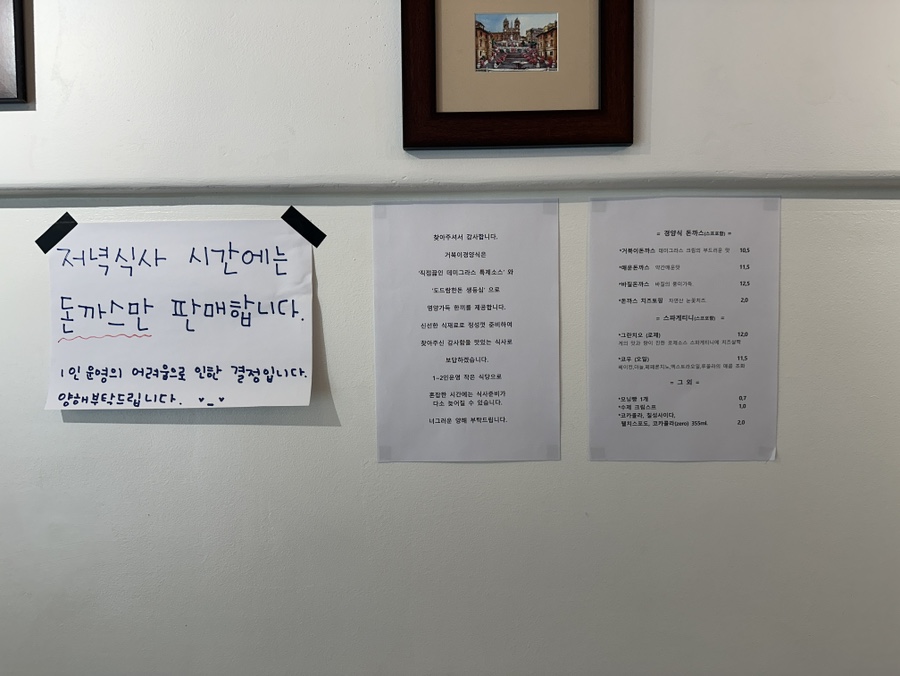 저녁식사 시간에는
돈까스만 판매합니다.
1인 운영의 어려움으로 인한 결정입니다.
양해부탁드립니다. ♥_♥
찾아주셔서 감사합니다.
거북이경양식은
'직접끓인 데미그라스 특제소스' 와
'도드람한돈 생등심' 으로
영양가득 한끼를 제공합니다.
신선한 식재료로 정성껏 준비하여
찾아주신 감사함을 맛있는 식사로
보답하겠습니다.
1~2인운영 작은 식당으로
혼잡한 시간에는 식사준비가
다소 늦어질 수 있습니다.
너그러운 양해 부탁드립니다.
= 경양식 돈까스(스프포함) =
*거북이돈까스 데미그라스 크림의 부드러운 맛 10,5
*매운돈까스 약간매운맛 11,5
*바질돈까스 바질의 풍미가득 12,5
*돈까스 치즈토핑 자연산 눈꽃치즈 2,0
= 스파게티니(스프포함) =
*그란치오 (로제) 12,0
게의 맛과 향이 진한 로제소스 스파게티니에 치즈살짝
*꼬우 (오일) 11,5
베이컨,마늘,페페론치노,엑스트라오일,루꼴라의 매콤 조화
= 그 외 =
*모닝빵 1개 0,7
*수제 크림스프 1,0
*코카콜라, 칠성사이다,
웰치스포도, 코카콜라(zero) 355ml 2,0